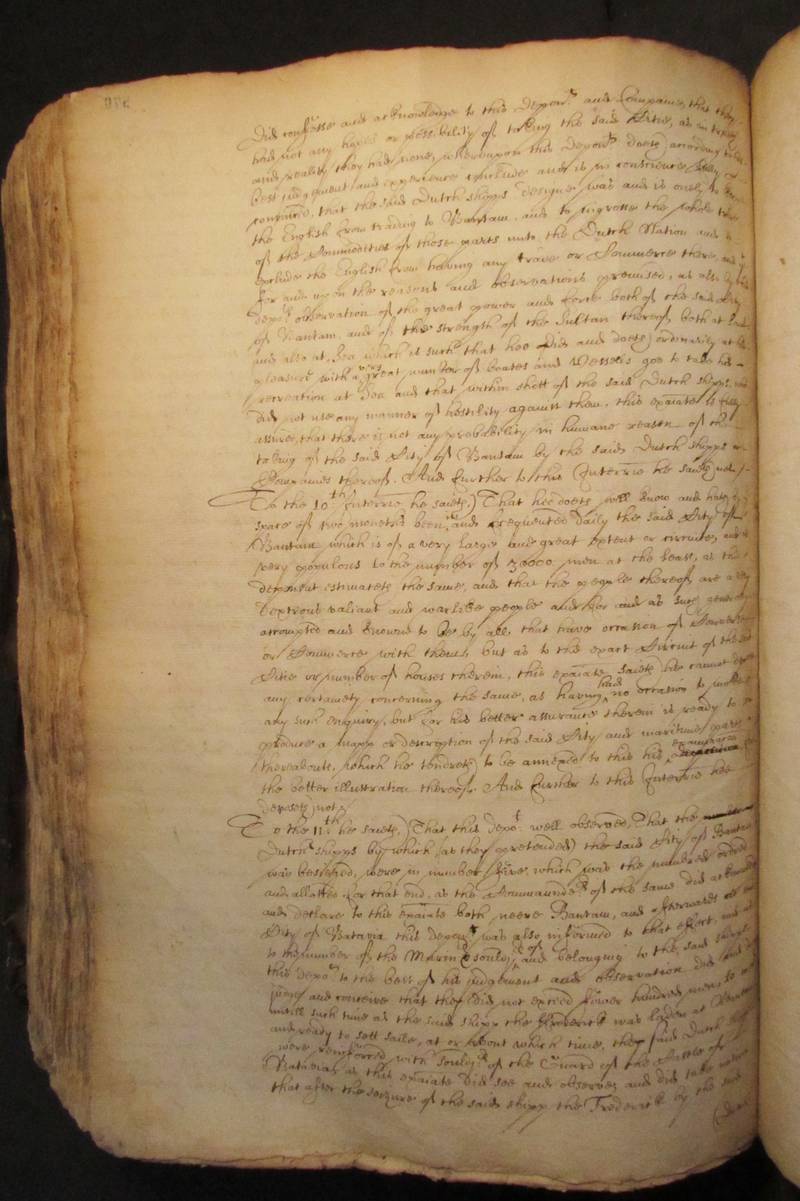 Did confesse and acknowledge to this Depon.t and Companie, that they
had not any hopes or possibility of taking the said Citie, as in
and reality they had none, whereupon this Depon.t doeth according to
best judgement and experience conclude and is in conscience fully
convinced, that the said Dutch shipps designe was and is onely to
the English from trading to Bantam, and to ingrosse the whole trade
of the Commodities of those parts unto the Dutch Nation and
exclude the English from having any trade or Commerce there, and
for and upon the reasons and observations premised, as also
depo.ts observation of the great power and force both of the said City
of Bantam and of the strength of the Sultan thereof, both at Land
and also at Sea which is such that hee did and doeth ordinarily at his
pleasure with a very great number of boates and Vessells goe to take his
recreation at Sea and that within shott of the said Dutch shipps, and
did not use any manner of hostility against them, this exãiate is fully
assured, that there is not any probability in humane reason of the
taking of the said City of Bantam by the said Dutch shipps or
Companies thereof. And further to this Interrie he saieth not /
To the 10.th Interrie he saieth, That hee doeth well know and hath
space of two moneths been in and frequented daily the said City of
Bantam which is of a very large and great extent or circuite, and is
very populous to the number of 30000 men at the least, as this
deponent estimateth the same, and that the people thereof are a very
dextrous valiant and warlike people and for and as such generally
accompted and knowne to be by all that have occasion of Converse
or Commerce with them, but as to the exact Circuit of the said
Citie or number of houses therein, this exãiate saieth he cannot depose
any certainty concerning the same, as having had no occasion to make
any such enquiry, but for his better assurance therein is ready to
produce a mapp or description of the said City and maritime parts
thereabouts, which he tendreth to be annexed to this his examinacon
the better illustration thereof. And further to this Interrie hee
deposeth not /
To the 11.th he saieth, That this depo.t well observed, That the
Dutch shipps by which (as they pretended) the said City of Bantam
was besieged, were in number five, which was the number ordered
and allotted for that end, as the Commaunde.rs of the same did acknowledge
and declare to this exãiate both neere Bantam, and afterwards at the
City of Batavia this Depon.t was also informed to that effect, and as
to the number of the Marin.rs & souldj.rs of and belonging to the said shipps
this Depo.t to the best of his judgement and observation did and doth
judge and conceive that they did not exceed fower hundred men, to
untill such time as the said shipp the Frederick was laden at Bantam
and ready to sett saile, at or about which time, they said Dutch shipps
were reinforced with souldj.rs of the Guard of the Castle of
Batavia, as this exãiate did see and observe, and did take notice
that after the seizure of the said shipp the Frederick by the said